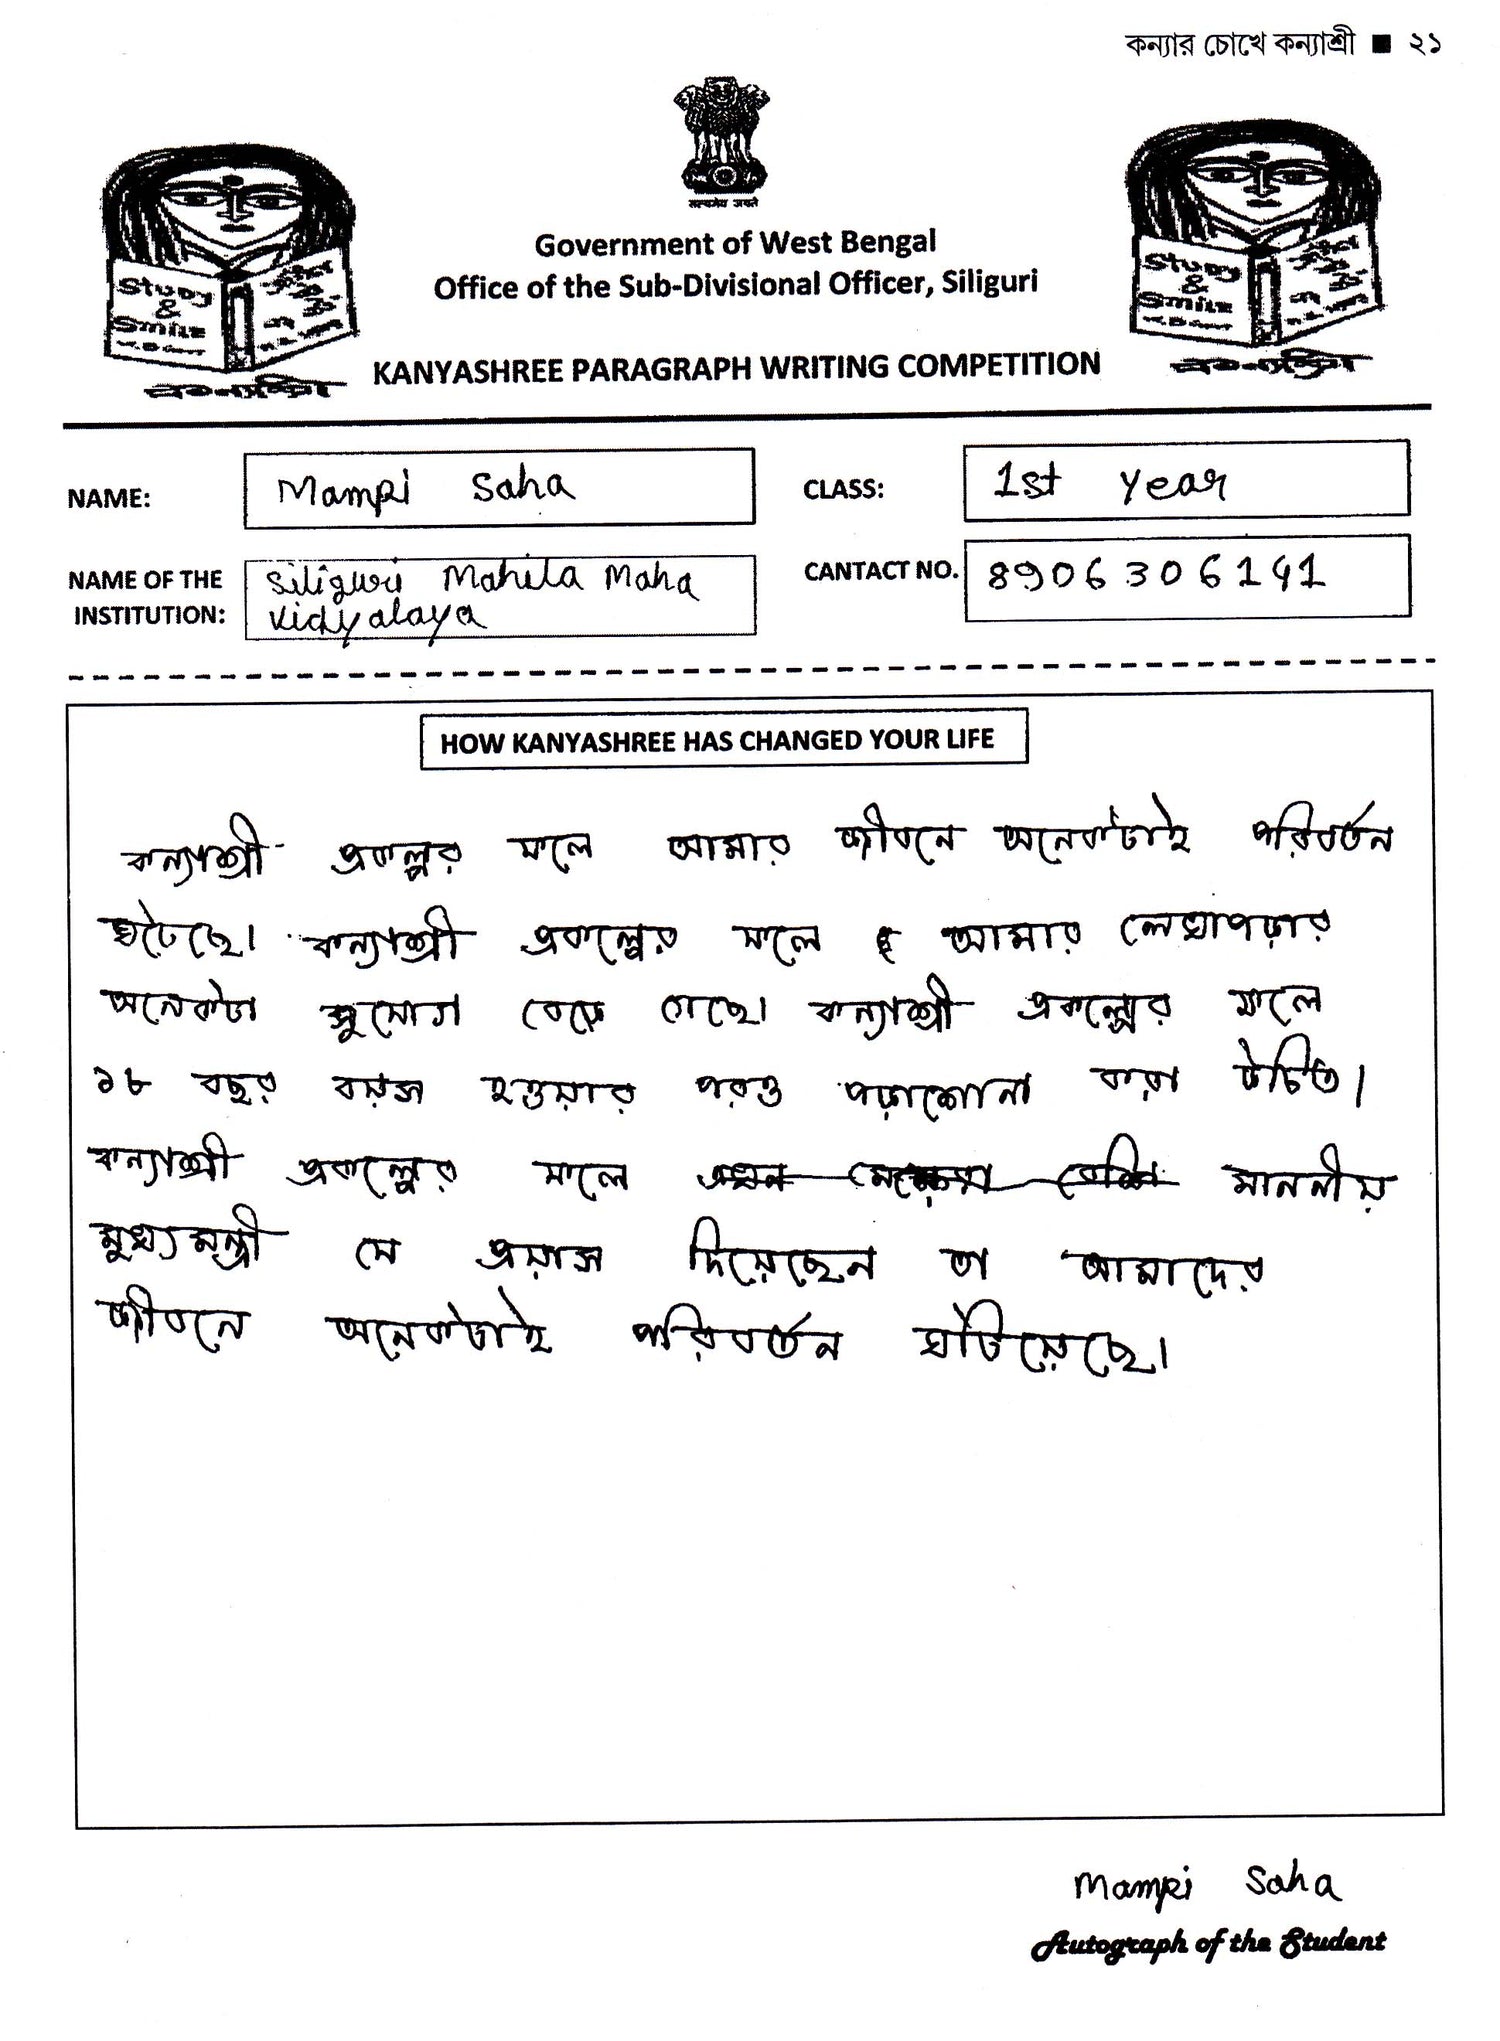 কন্যার চোখে কন্যাশ্রী ■ ২১
सत्यमेव जयते
Government of West Bengal
Office of the Sub-Divisional Officer, Siliguri
Study
&
Smile
Study
&
Smile
KANYASHREE PARAGRAPH WRITING COMPETITION
কন্যাশ্রী
কন্যাশ্রী
NAME: Mampi Saha CLASS: 1st Year
NAME OF THE INSTITUTION: Siliguri Mahila Maha
Vidyalaya
CANTACT NO. 8906306141
HOW KANYASHREE HAS CHANGED YOUR LIFE
কন্যাশ্রী প্রকল্পের ফলে আমার জীবনে অনেকটাই পরিবর্তন
ঘটেছে। কন্যাশ্রী প্রকল্পের ফলে আমার লেখাপড়ার
অনেকটা সুযোগ বেড়ে গেছে। কন্যাশ্রী প্রকল্পের ফলে
১৮ বছর বয়স হওয়ার পরও পড়াশোনা করা উচিত।
কন্যাশ্রী প্রকল্পের ফলে এখন মেয়েরা বেশি মাননীয়
মুখ্যমন্ত্রী যে প্রয়াস দিয়েছেন তা আমাদের
জীবনে অনেকটাই পরিবর্তন ঘটিয়েছে।
Mampi Saha
Autograph of the Student